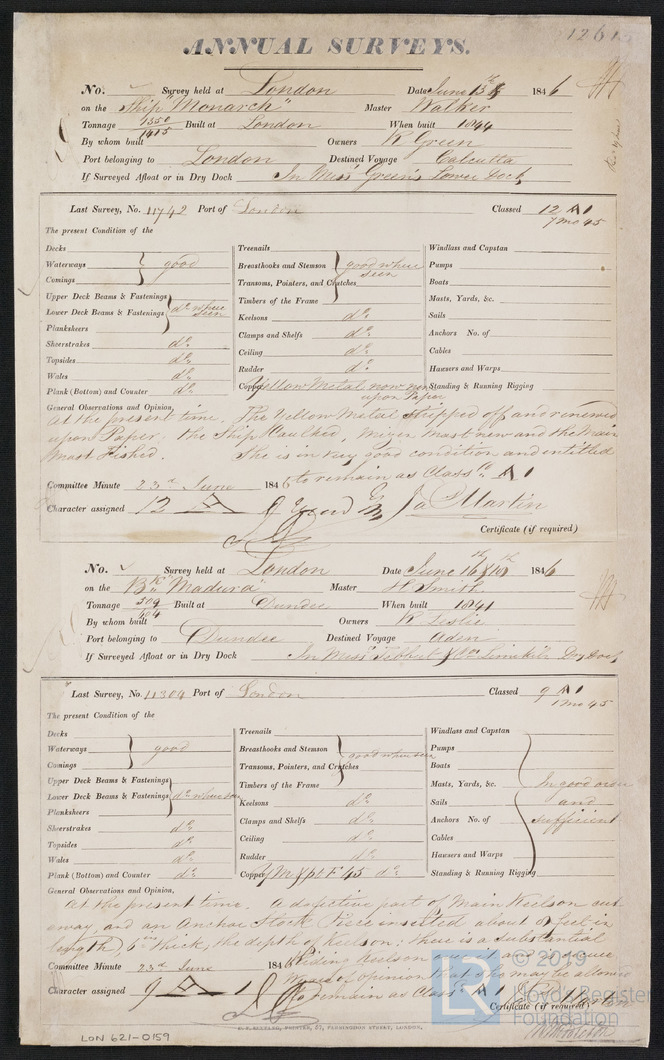 1261
ANNUAL SURVEYS.
No. Survey held at London Date June 1846
on the Ship "Monarch" Master Walker
Tonnage 1350 1415 Built at London When built 1844
By whom built Owners R Green
Port belonging to London Destined Voyage Calcutta
If Surveyed Afloat or in Dry Dock In Messrs Green's Lower Dock
Last Survey, No. 11742 Port of London Classed 12 A 1
7 mo 45
The present Condition of the
Decks
Waterways good
Comings
Upper Deck Beams & Fastenings
Lower Deck Beams & Fastenings do where seen
Planksheers
Sheerstrakes do
Topsides do
Wales do
Plank (Bottom) and Counter do
Treenails
Breasthooks and Stemson good where seen
Transoms, Pointers, and Crutches
Timbers of the Frame
Keelsons do
Clamps and Shelfs do
Ceiling do
Rudder do
Copper Yellow Metal now new upon Paper
Windlass and Capstan
Pumps
Boats
Masts, Yards, &c.
Sails
Anchors No. of
Cables
Hawsers and Warps
Standing & Running Rigging
General Observations and Opinion,
At the present time, The Yellow Metal stripped off and renewed
upon Paper, the Ship Caulked, Mizen Mast new and the Main
Mast Fished. She is in very good condition and entitled
to remain as Class'd A 1
Committee Minute 23rd June 1846
Character assigned 12 A Jas Martin
Certificate (if required)
No. Survey held at London Date June 1846
on the Bk "Madura" Master H Smith
Tonnage Built at Dundee When built 1841
By whom built Owners R Leslie
Port belonging to Dundee Destined Voyage Aden
If Surveyed Afloat or in Dry Dock In Messrs Limekiln Dry Dock
Last Survey, No. 11304 Port of London Classed 9 A 1
1 mo 45
The present Condition of the
Decks
Waterways good
Comings
Upper Deck Beams & Fastenings
Lower Deck Beams & Fastenings do where seen
Planksheers
Sheerstrakes do
Topsides do
Wales do
Plank (Bottom) and Counter do
Treenails
Breasthooks and Stemson good where seen
Transoms, Pointers, and Crutches
Timbers of the Frame
Keelsons do
Clamps and Shelfs do
Ceiling do
Rudder do
Copper do
Windlass and Capstan
Pumps
Boats
Masts, Yards, &c. In good order
Sails and
Anchors No. of sufficient
Cables
Hawsers and Warps
Standing & Running Rigging
General Observations and Opinion,
At the present time. A defective part of Main Keelson cut
away, and an Anchor Stock Piece inserted about 8 feet in
length, 6 in thick, the depth of Keelson; there is a substantial
Riding Keelson
of opinion that she may be allowed
to remain as Class'd A 1
Committee Minute 23rd June 1846
Character assigned 9 A 1
Certificate (if required)
© 2019
LR
Lloyd's Register
Foundation
PRINTER, 37, PENNINGTON STREET, LONDON.
LON 621-0159